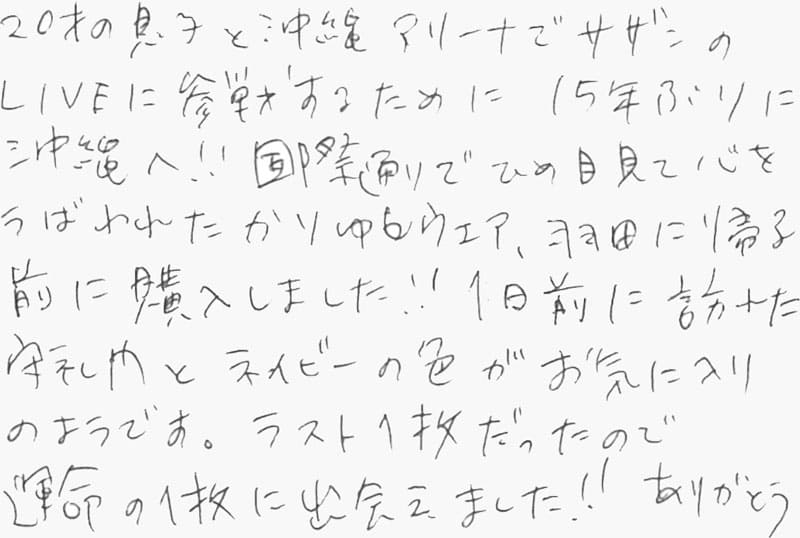 20才の息子と沖縄アリーナでサザンの
LIVEに参戦するために 15年ぶりに
沖縄へ!! 国際通りでひめ目見て心を
うばわれたかりゆしウェア、羽田に帰る
前に購入しました!! 1日前に訪れた
守礼門とネイビーの色がお気に入り
のようです。ラスト1枚だったので
運命の1枚に出会えました!! ありがとう